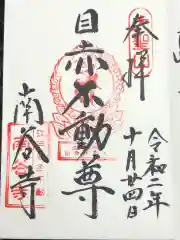 奉拝
令和二年
十月廿四日
目赤不動尊
南谷寺